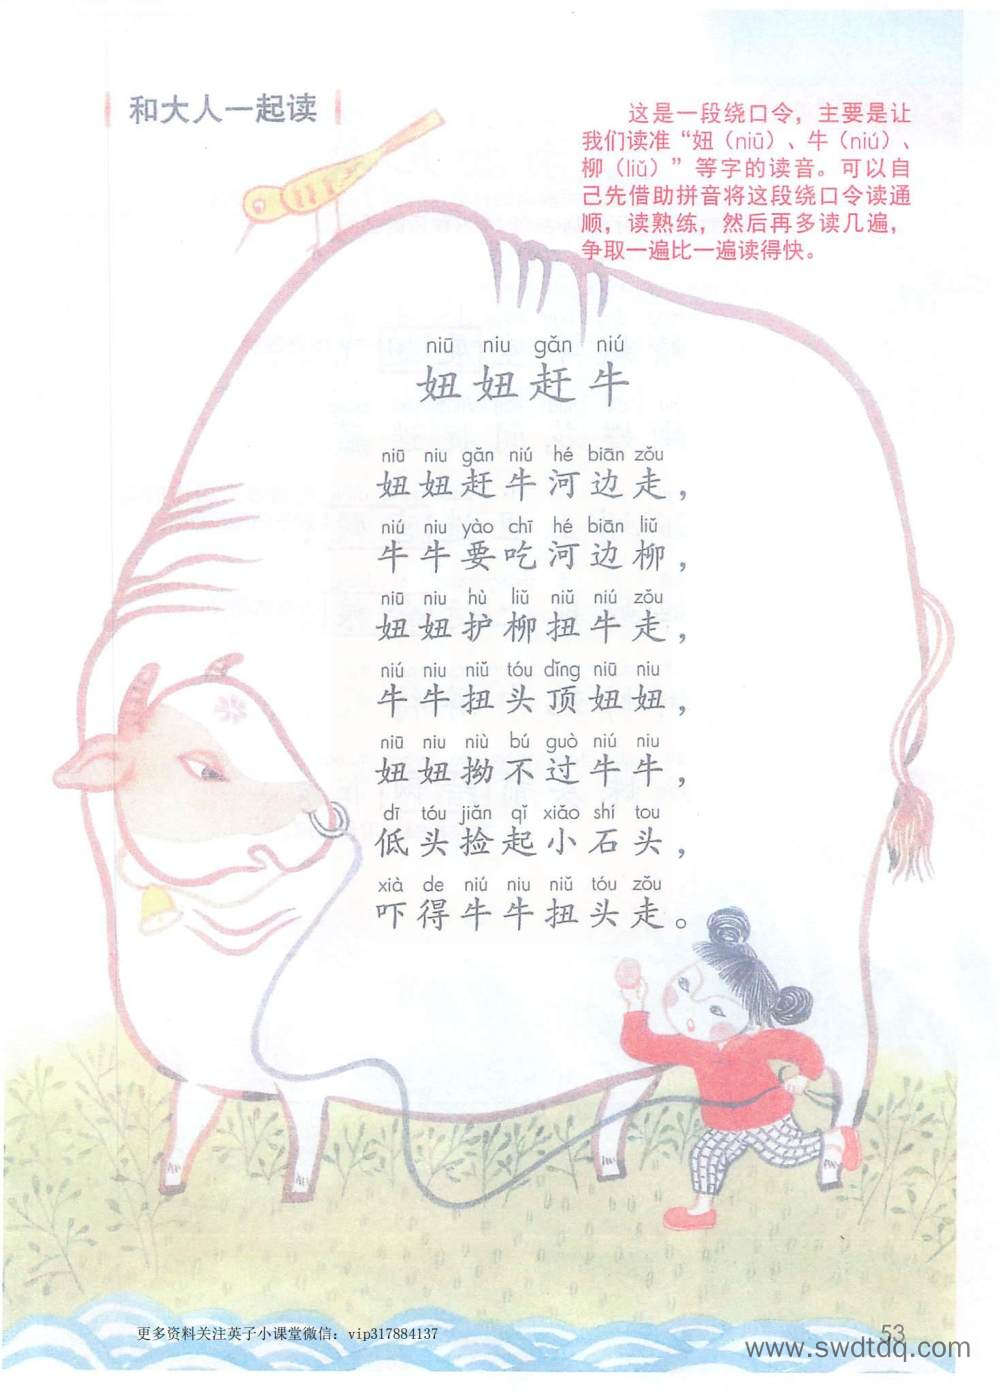 和大人一起读
这是一段绕口令，主要是让
我们读准“妞（niū）、牛（niú）、
柳（liǔ）”等字的读音。可以自
己先借助拼音将这段绕口令读通
顺，读熟练，然后再多读几遍，
争取一遍比一遍读得快。
niū niu gǎn niú
妞妞赶牛
niū niu gǎn niú hé biān zǒu
妞妞赶牛河边走，
niú niu yào chī hé biān liǔ
牛牛要吃河边柳，
niū niu hù liǔ niǔ niú zǒu
妞妞护柳扭牛走，
niú niu niǔ tóu dǐng niū niu
牛牛扭头顶妞妞，
niū niu niù bú guò niú niu
妞妞拗不过牛牛，
dī tóu jiǎn qǐ xiǎo shí tou
低头捡起小石头，
xià de niú niu niǔ tóu zǒu
吓得牛牛扭头走。
更多资料关注英子小课堂微信：vip317884137
53
www.swdtdq.com